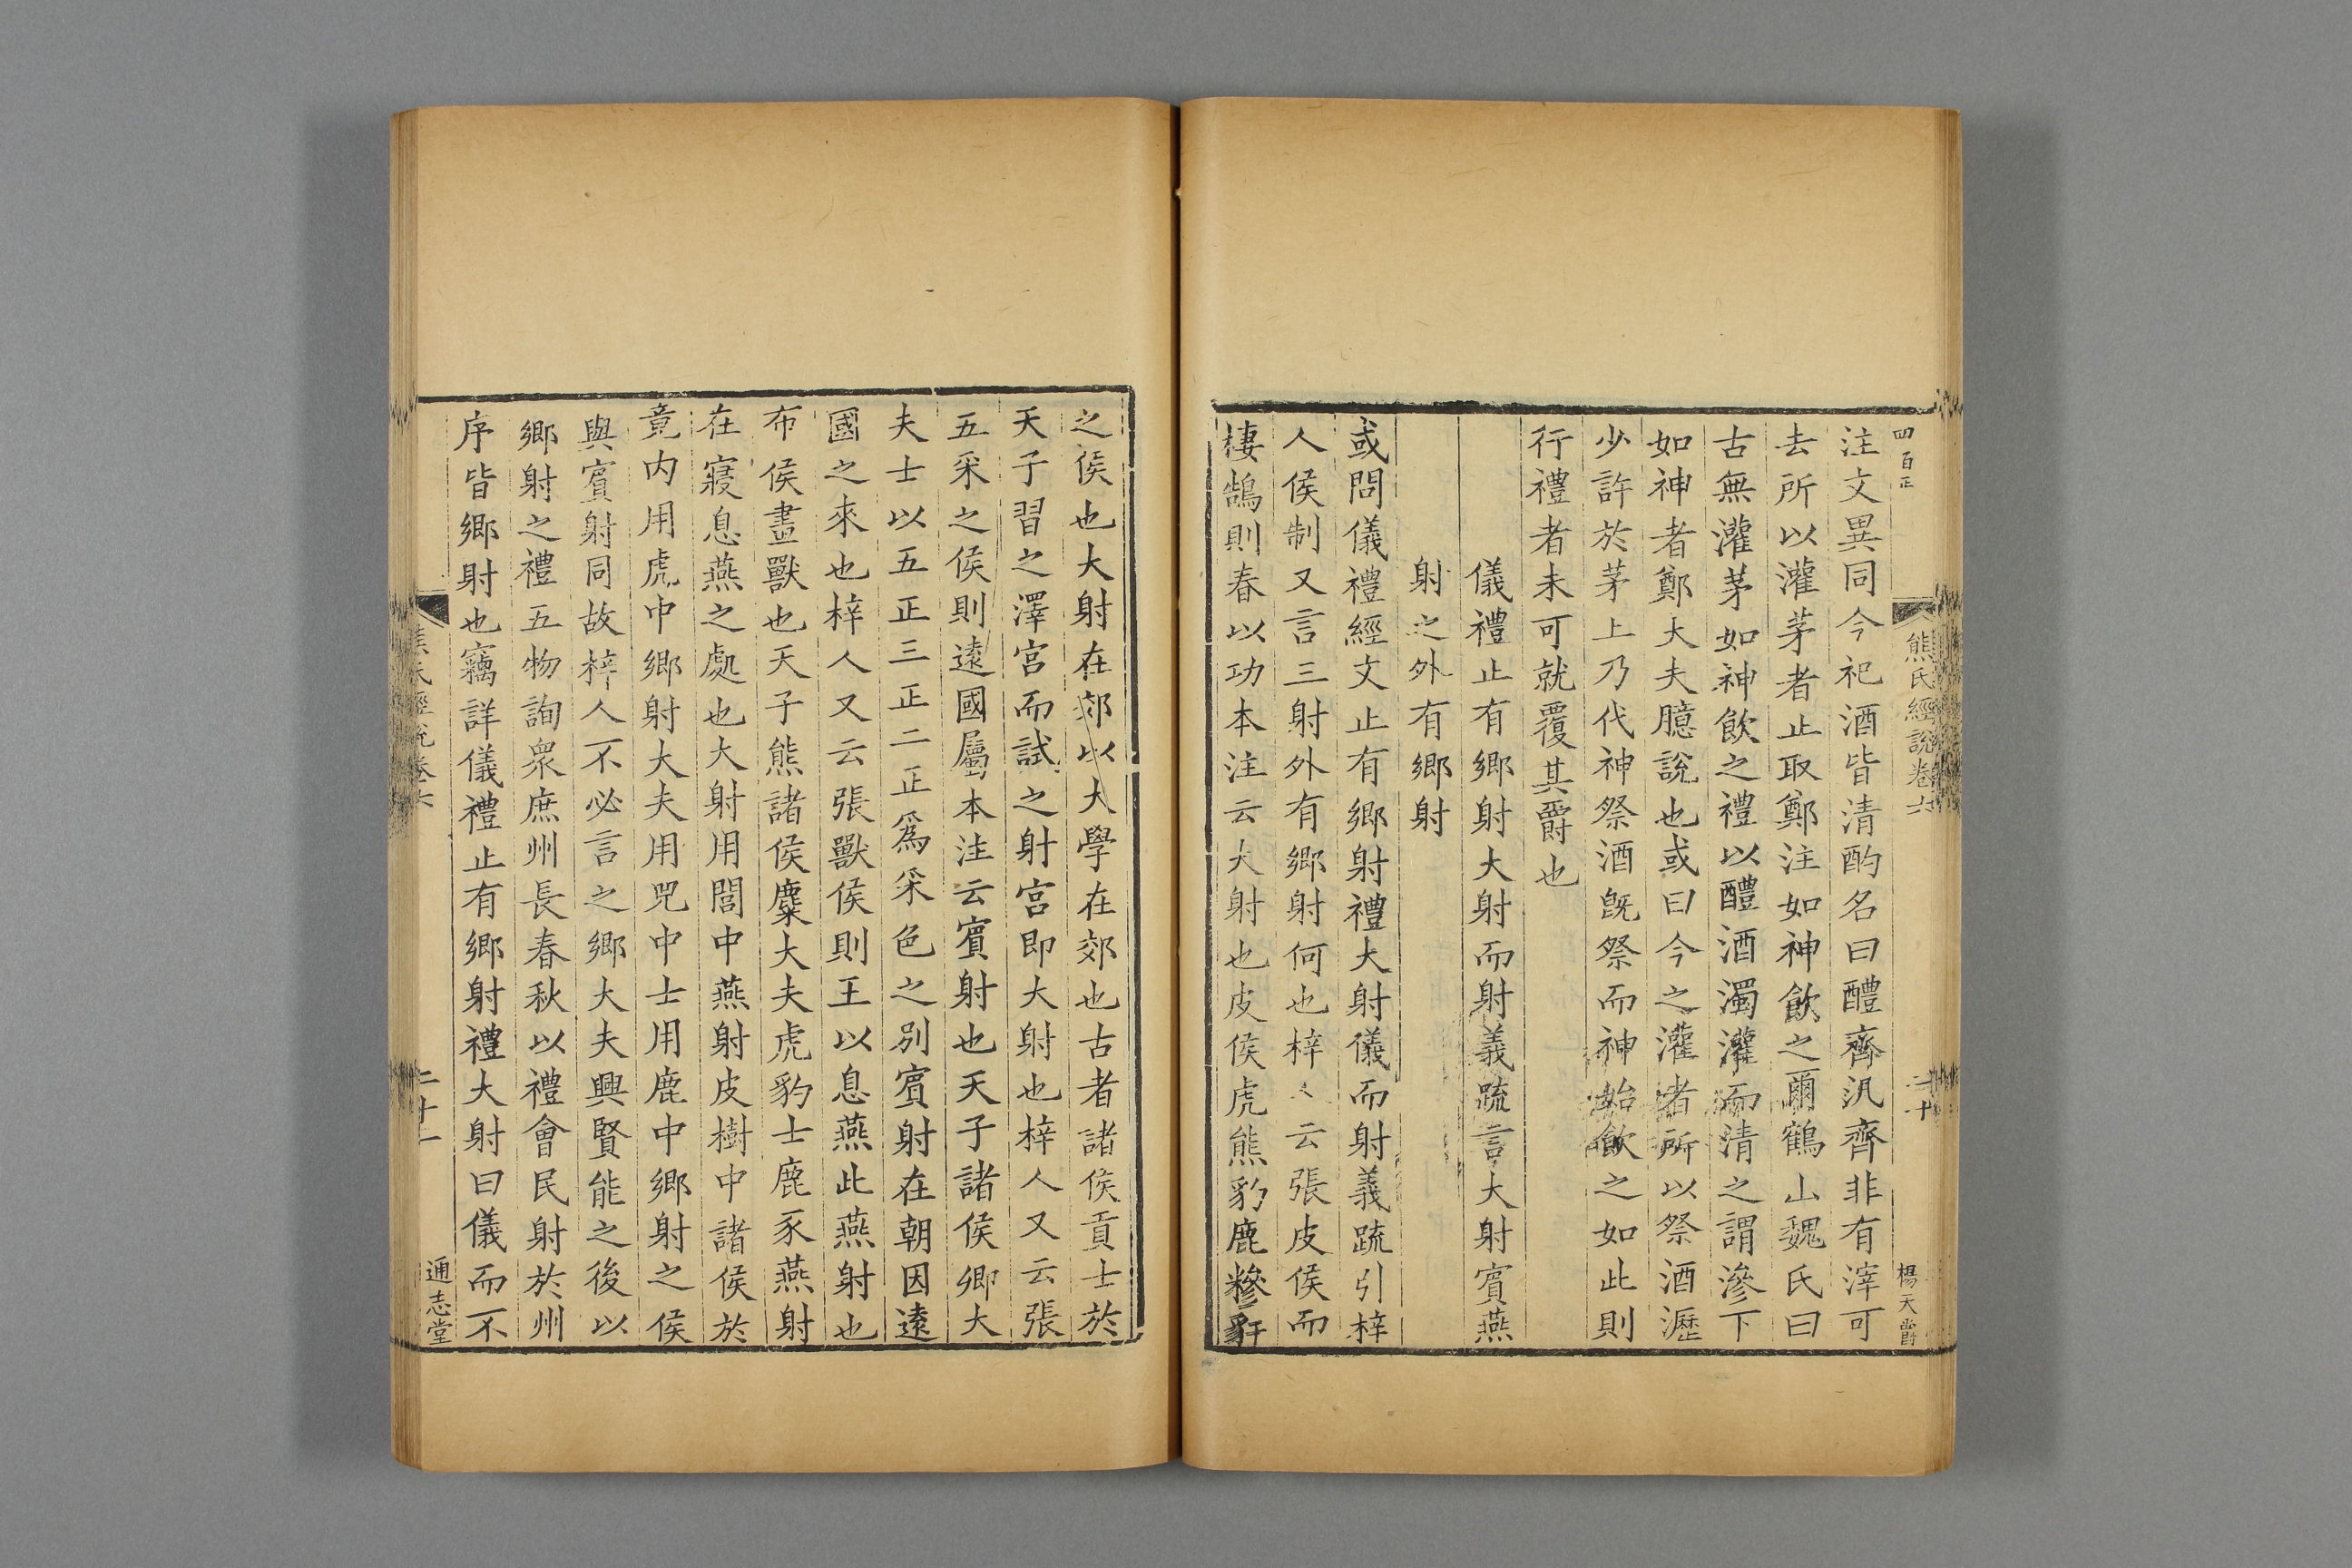 四百正
熊氏經說卷六
二十
楊天爵
注文異同今祀酒皆清酌名曰醴齊汎齊非有滓可
去所以灌茅者止取鄭注如神飲之爾鶴山魏氏曰
古無灌茅如神飲之禮以醴酒濁灌而清之謂滲下
如神者鄭大夫臆說也或曰今之灌者所以祭酒瀝
少許於茅上乃代神祭酒旣祭而神始飲之如此則
行禮者未可就覆其爵也
儀禮止有鄉射大射而射義疏言大射賓燕
射之外有鄉射
或問儀禮經文止有鄉射禮大射儀而射義疏引梓
人侯制又言三射外有鄉射何也梓人云張皮侯而
棲鵠則春以功本注云大射也皮侯虎熊豹鹿糝豻
之侯也大射在郊以大學在郊也古者諸侯貢士於
天子習之澤宮而試之射宮即大射也梓人又云張
五采之侯則遠國屬本注云賓射也天子諸侯卿大
夫士以五正三正二正爲采色之別賓射在朝因遠
國之來也梓人又云張獸侯則王以息燕此燕射也
布侯畫獸也天子熊諸侯麋大夫虎豹士鹿豕燕射
在寢息燕之處也大射用閭中燕射皮樹中諸侯於
竟内用虎中鄉射大夫用兕中士用鹿中鄉射之侯
與賓射同故梓人不必言之鄉大夫興賢能之後以
鄉射之禮五物詢衆庶州長春秋以禮會民射於州
序皆鄉射也竊詳儀禮止有鄉射禮大射曰儀而不
熊氏經說卷六
二十一
通志堂